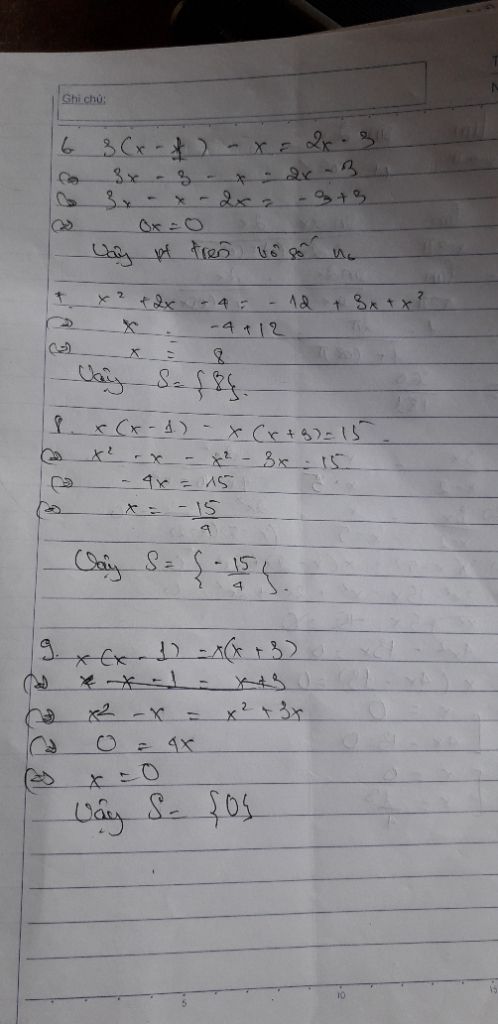 Ghi chú:
6 3(x - 1) - x = 2x - 3
<=> 3x - 3 - x = 2x - 3
<=> 3x - x - 2x = -3 + 3
<=> 0x = 0
Vậy pt trên vô số n₀
7. x² + 2x - 4 = - 12 + 3x + x²
<=> x = -4 + 12
<=> x = 8
Vậy S = {8}.
8. x(x - 1) - x(x + 3) = 15
<=> x² - x - x² - 3x = 15
<=> - 4x = 15
<=> x = -15/4
Vậy S = {-15/4}.
9. x(x - 1) = x(x + 3)
<=> x² - x = x² + 3x
<=> 0 = 4x
<=> x = 0
Vậy S = {0}
5 10 15